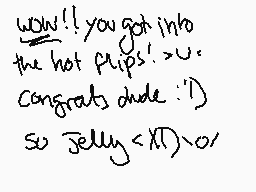 wow!! you got into
the hot flips! >u<
congrats dude :')
so jelly <XD \o/